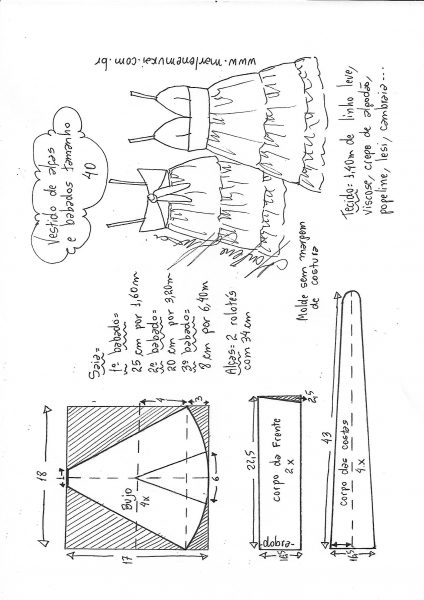 www.marlenemukai.com.br
Vestido de alças
e babados tamanho
40
Tecido: 1,40m de linho leve,
viscose, crepe de algodão,
popeline, lesi, cambraia...
Saia=
1º babado=
25 cm por 1,60m
2º babado=
20 cm por 3,20m
3º babado=
8 cm por 6,40m
Alças: 2 rolotês
com 34 cm
Molde sem margem
de costura
18
1
4
3
Bujo
4x
6
17
22,5
2,5
corpo da frente
2x
dobra
16,5
43
corpo das costas
4x
16,5